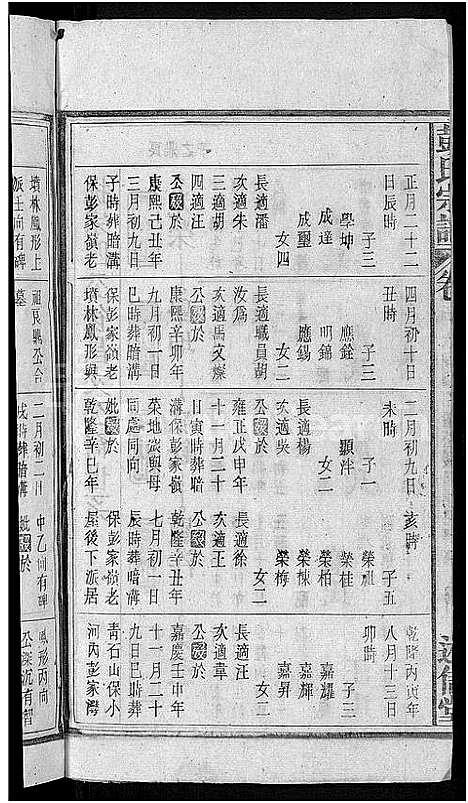 彭氏宗譜
正月二十二
日辰時
子三
學坤
成達
成璽
女四
長適潘
次適朱
三適胡
四適汪
公歿於
康熙己丑年
三月初九日
子時葬暗溝
保彭家嶺老
墳林鳳形上
派壬向有碑
四月初十日
丑時
子三
應銓
明錦
應錫
女二
長適職員胡
汝為
次適馬文燦
公歿於
康熙辛卯年
九月初一日
同時葬暗溝
保彭家嶺老
墳林鳳形與
祖良鵬公合
墓
二月初九日
未時
子一
顯泮
女二
長適楊
次適吳
公歿於
雍正戊申年
十一月二十
日寅時葬暗
溝保彭家嶺
菜地嶺與母
同處同向
妣歿於
乾隆辛巳年
二月初二日
戌時葬暗溝
亥時
子五
榮祖
榮桂
榮柏
榮棟
榮梅
女二
長適徐
次適王
公歿於
乾隆辛丑年
七月初一日
辰時葬暗溝
保彭家嶺老
屋後下派居
中乙向有碑
妣歿於
乾隆丙寅年
八月十三日
卯時
子三
嘉耀
嘉昇
女二
長適汪
次適韋
公歿於
嘉慶壬申年
十一月二十
九日巳時葬
青石山保小
河內彭家灣
鳳形丙向